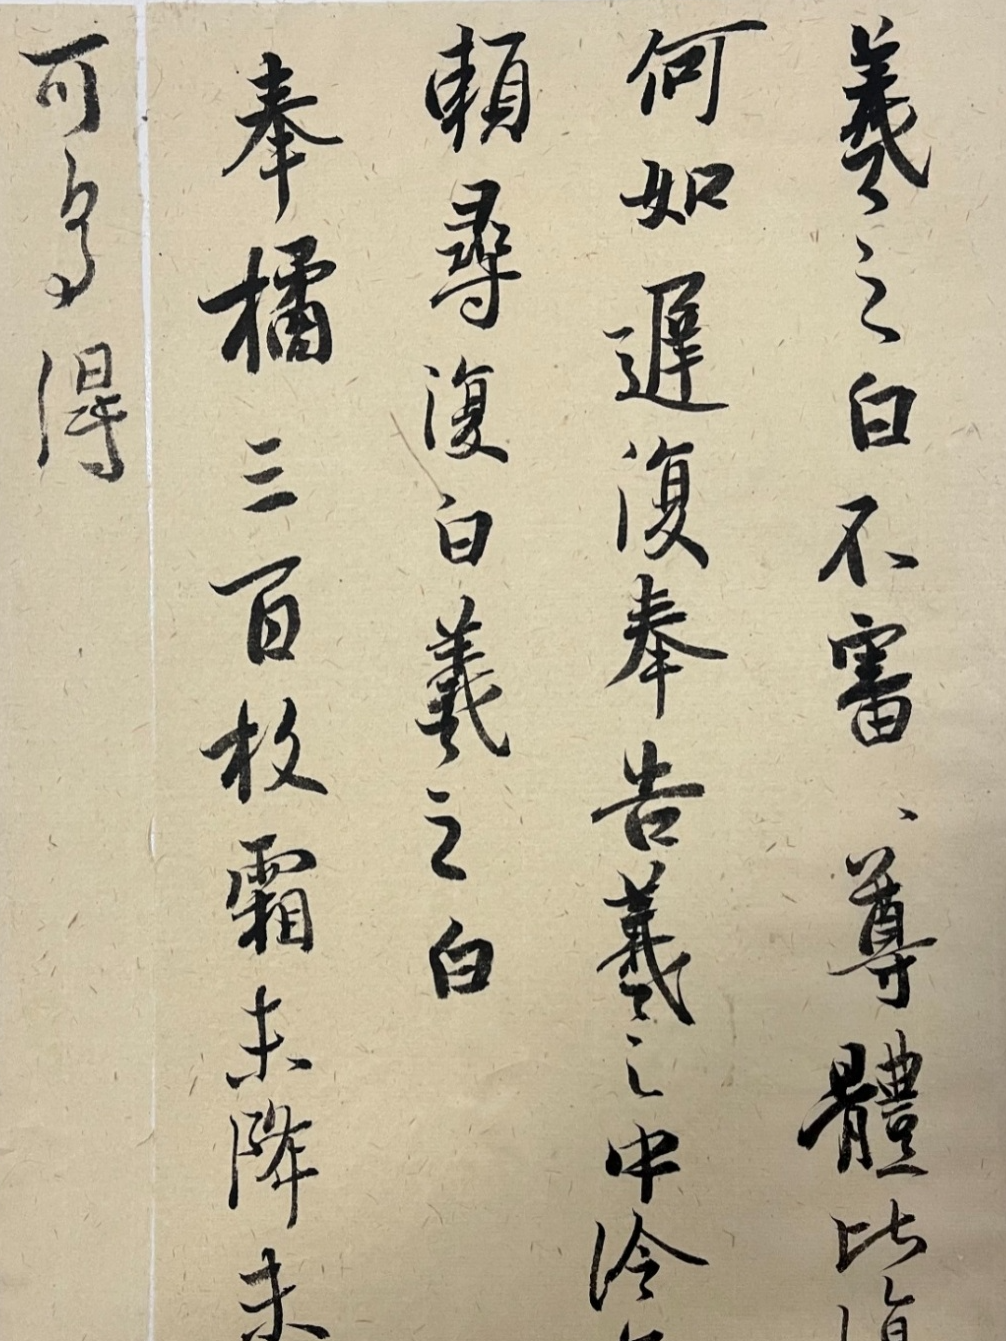 羲之白不審、尊體比復
何如遲復奉告羲之中冷
賴尋復白羲之白
奉橘三百枚霜未降未
可多得